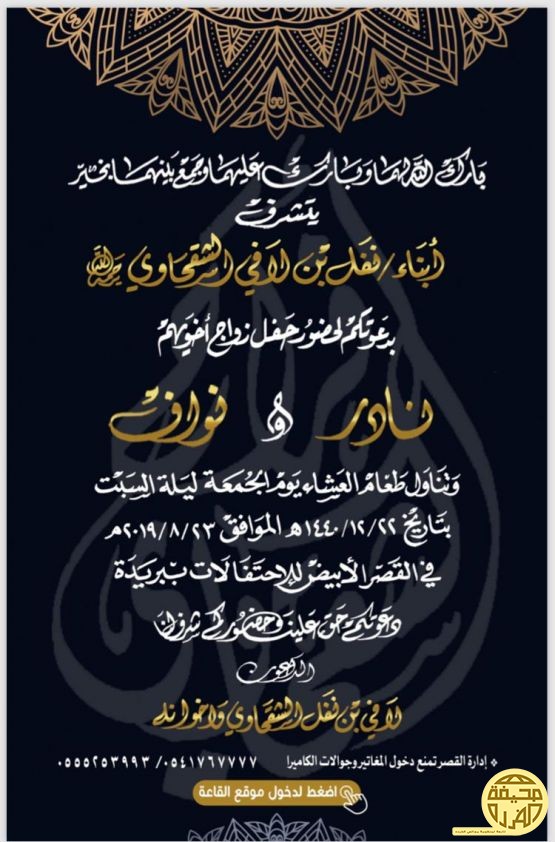 بارك الله لهما وبارك عليهما وجمع بينهما بخير
يتشرف
أبناء / نفل بن لافي الشقحاوي رحمه الله
بدعوتكم لحضور حفل زواج أخويهم
نادر و نواف
وتناول طعام العشاء يوم الجمعة ليلة السبت
بتاريخ ١٤٤٠/١٢/٢٢هـ الموافق ٢٠١٩/٨/٢٣م
في القصر الأبيض للاحتفالات ببريدة
دعوتكم حق علينا وحضوركم شرف لنا
الداعون
لافي بن نفل الشقحاوي واخوانه
* إدارة القصر تمنع دخول المغاتير وجوالات الكاميرا ٠٥٤١٧٦٧٧٧٧ / ٠٥٥٥٢٥٣٩٩٣
اضغط لدخول موقع القاعة
صحيفة